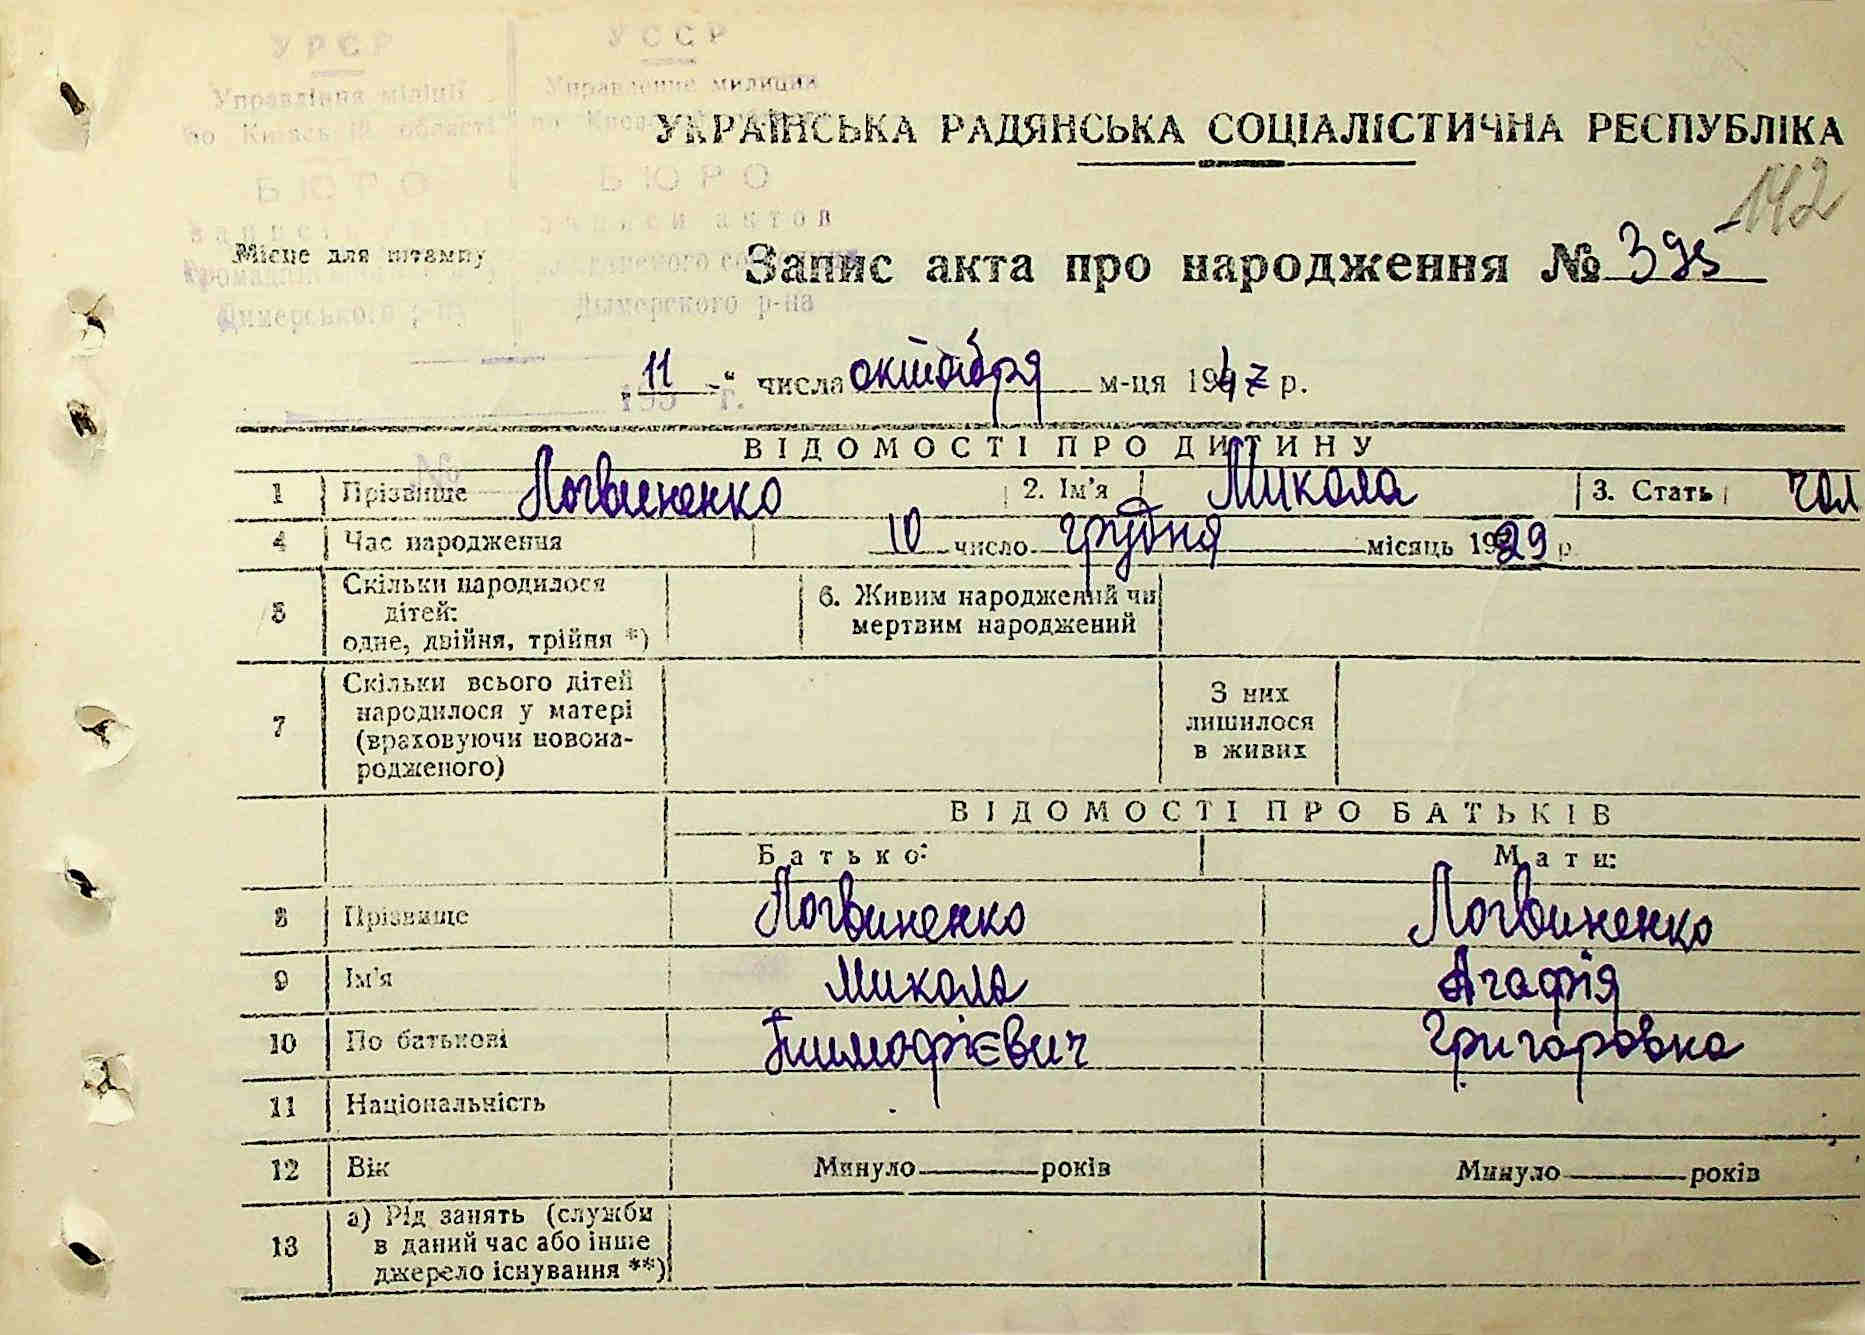 УРСР УССР
Управління міліції Управление милиции
по Київській області по Киевской
БЮРО БЮРО
записи актов
Димерського р-ну Дымерского р-на
УКРАЇНСЬКА РАДЯНСЬКА СОЦІАЛІСТИЧНА РЕСПУБЛІКА
142
Місце для штампу
Запис акта про народження № 395
„11“ числа октября м-ця 1947 р.
195 г.
№
ВІДОМОСТІ ПРО ДИТИНУ
1 Прізвище Логвиненко 2. Ім'я Микола 3. Стать чол
4 Час народження 10 число грудня місяць 1929 р.
5 Скільки народилося
дітей:
одне, двійня, трійня *)
6. Живим народжений чи
мертвим народжений
7 Скільки всього дітей
народилося у матері
(враховуючи новона-
родженого)
З них
лишилося
в живих
ВІДОМОСТІ ПРО БАТЬКІВ
Батько: Мати:
8 Прізвище Логвиненко Логвиненко
9 Ім'я Микола Агафія
10 По батькові Тимофієвич Григоровна
11 Національність
12 Вік Минуло років Минуло років
13 а) Рід занять (служби
в даний час або інше
джерело існування **)